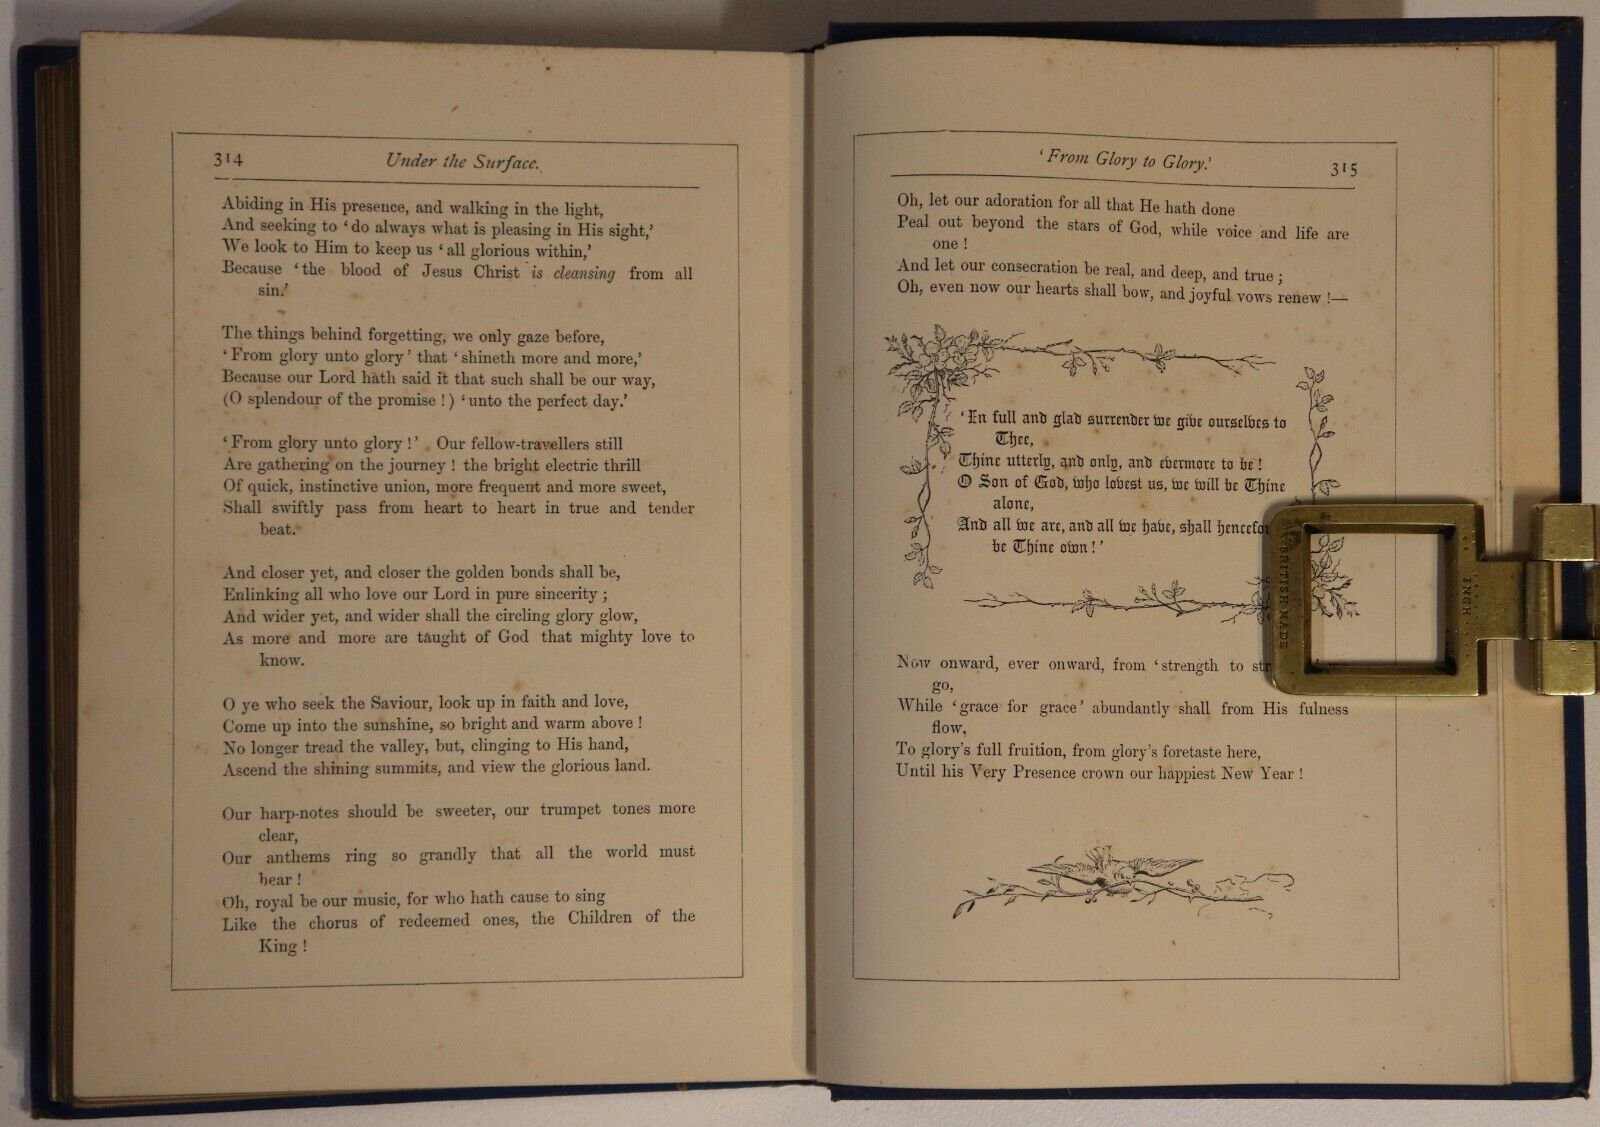 314
Under the Surface.
Abiding in His presence, and walking in the light,
And seeking to ‘do always what is pleasing in His sight,’
We look to Him to keep us ‘all glorious within,’
Because ‘the blood of Jesus Christ is cleansing from all
sin.’
The things behind forgetting, we only gaze before,
‘From glory unto glory’ that ‘shineth more and more,’
Because our Lord hath said it that such shall be our way,
(O splendour of the promise!) ‘unto the perfect day.’
‘From glory unto glory!’ Our fellow-travellers still
Are gathering on the journey! the bright electric thrill
Of quick, instinctive union, more frequent and more sweet,
Shall swiftly pass from heart to heart in true and tender
beat.
And closer yet, and closer the golden bonds shall be,
Enlinking all who love our Lord in pure sincerity;
And wider yet, and wider shall the circling glory glow,
As more and more are taught of God that mighty love to
know.
O ye who seek the Saviour, look up in faith and love,
Come up into the sunshine, so bright and warm above!
No longer tread the valley, but, clinging to His hand,
Ascend the shining summits, and view the glorious land.
Our harp-notes should be sweeter, our trumpet tones more
clear,
Our anthems ring so grandly that all the world must
hear!
Oh, royal be our music, for who hath cause to sing
Like the chorus of redeemed ones, the Children of the
King!
‘From Glory to Glory.’
315
Oh, let our adoration for all that He hath done
Peal out beyond the stars of God, while voice and life are
one!
And let our consecration be real, and deep, and true;
Oh, even now our hearts shall bow, and joyful vows renew!—
‘In full and glad surrender we give ourselves to
Thee,
Thine utterly, and only, and evermore to be!
O Son of God, who lovest us, we will be Thine
alone,
And all we are, and all we have, shall
be Thine own!’
Now onward, ever onward, from ‘strength to
go,
While ‘grace for grace’ abundantly shall from His fulness
flow,
To glory's full fruition, from glory's foretaste here,
Until his Very Presence crown our happiest New Year!
BRITISH MADE
INCH